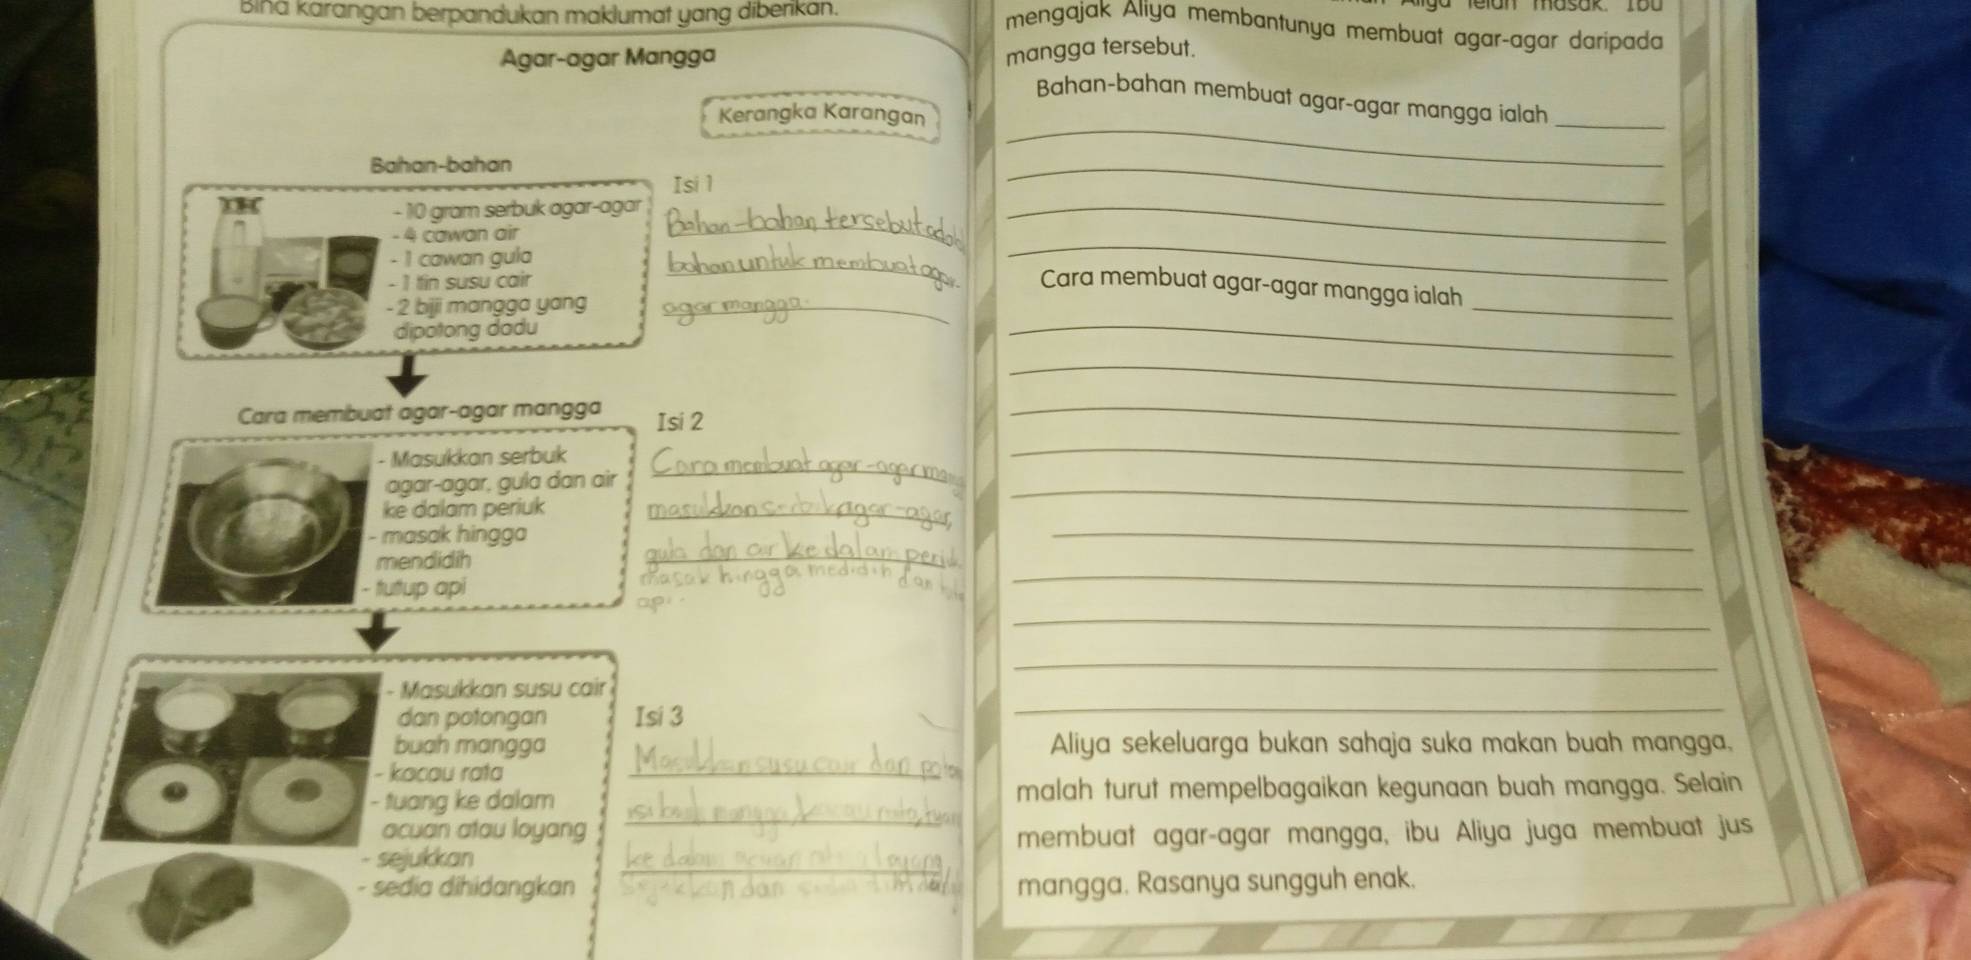 Bina karangan berpandukan maklumat yang diberikan.
Agar-agar Mangga
Kerangka Karangan
Bahan-bahan
- 10 gram serbuk agar-agar
- 4 cawan air
- 1 cawan gula
- 1 tin susu cair
- 2 biji mangga yang
dipotong dadu
Isi 1
Bahan-bahan tersebut adal
bahan untuk membuat agar-
agar mangga.
Cara membuat agar-agar mangga
- Masukkan serbuk
agar-agar, gula dan air
ke dalam periuk
- masak hingga
mendidih
- tutup api
Isi 2
Cara membuat agar-agar mang
masukkan serbuk agar-agar,
gula dan air ke dalam periuk
masak hingga medidih dan tutu
api.
- Masukkan susu cair
dan potongan
buah mangga
- kacau rata
- tuang ke dalam
acuan atau loyang
- sejukkan
- sedia dihidangkan
Isi 3
Masukkan susu cair dan poton
isi buah mangga, kacau rata, tuan
ke dalam acuan loyang
Sejukkan dan sedia
masak. Ibu
mengajak Aliya membantunya membuat agar-agar daripada
mangga tersebut.
Bahan-bahan membuat agar-agar mangga ialah
Cara membuat agar-agar mangga ialah
Aliya sekeluarga bukan sahaja suka makan buah mangga,
malah turut mempelbagaikan kegunaan buah mangga. Selain
membuat agar-agar mangga, ibu Aliya juga membuat jus
mangga. Rasanya sungguh enak.